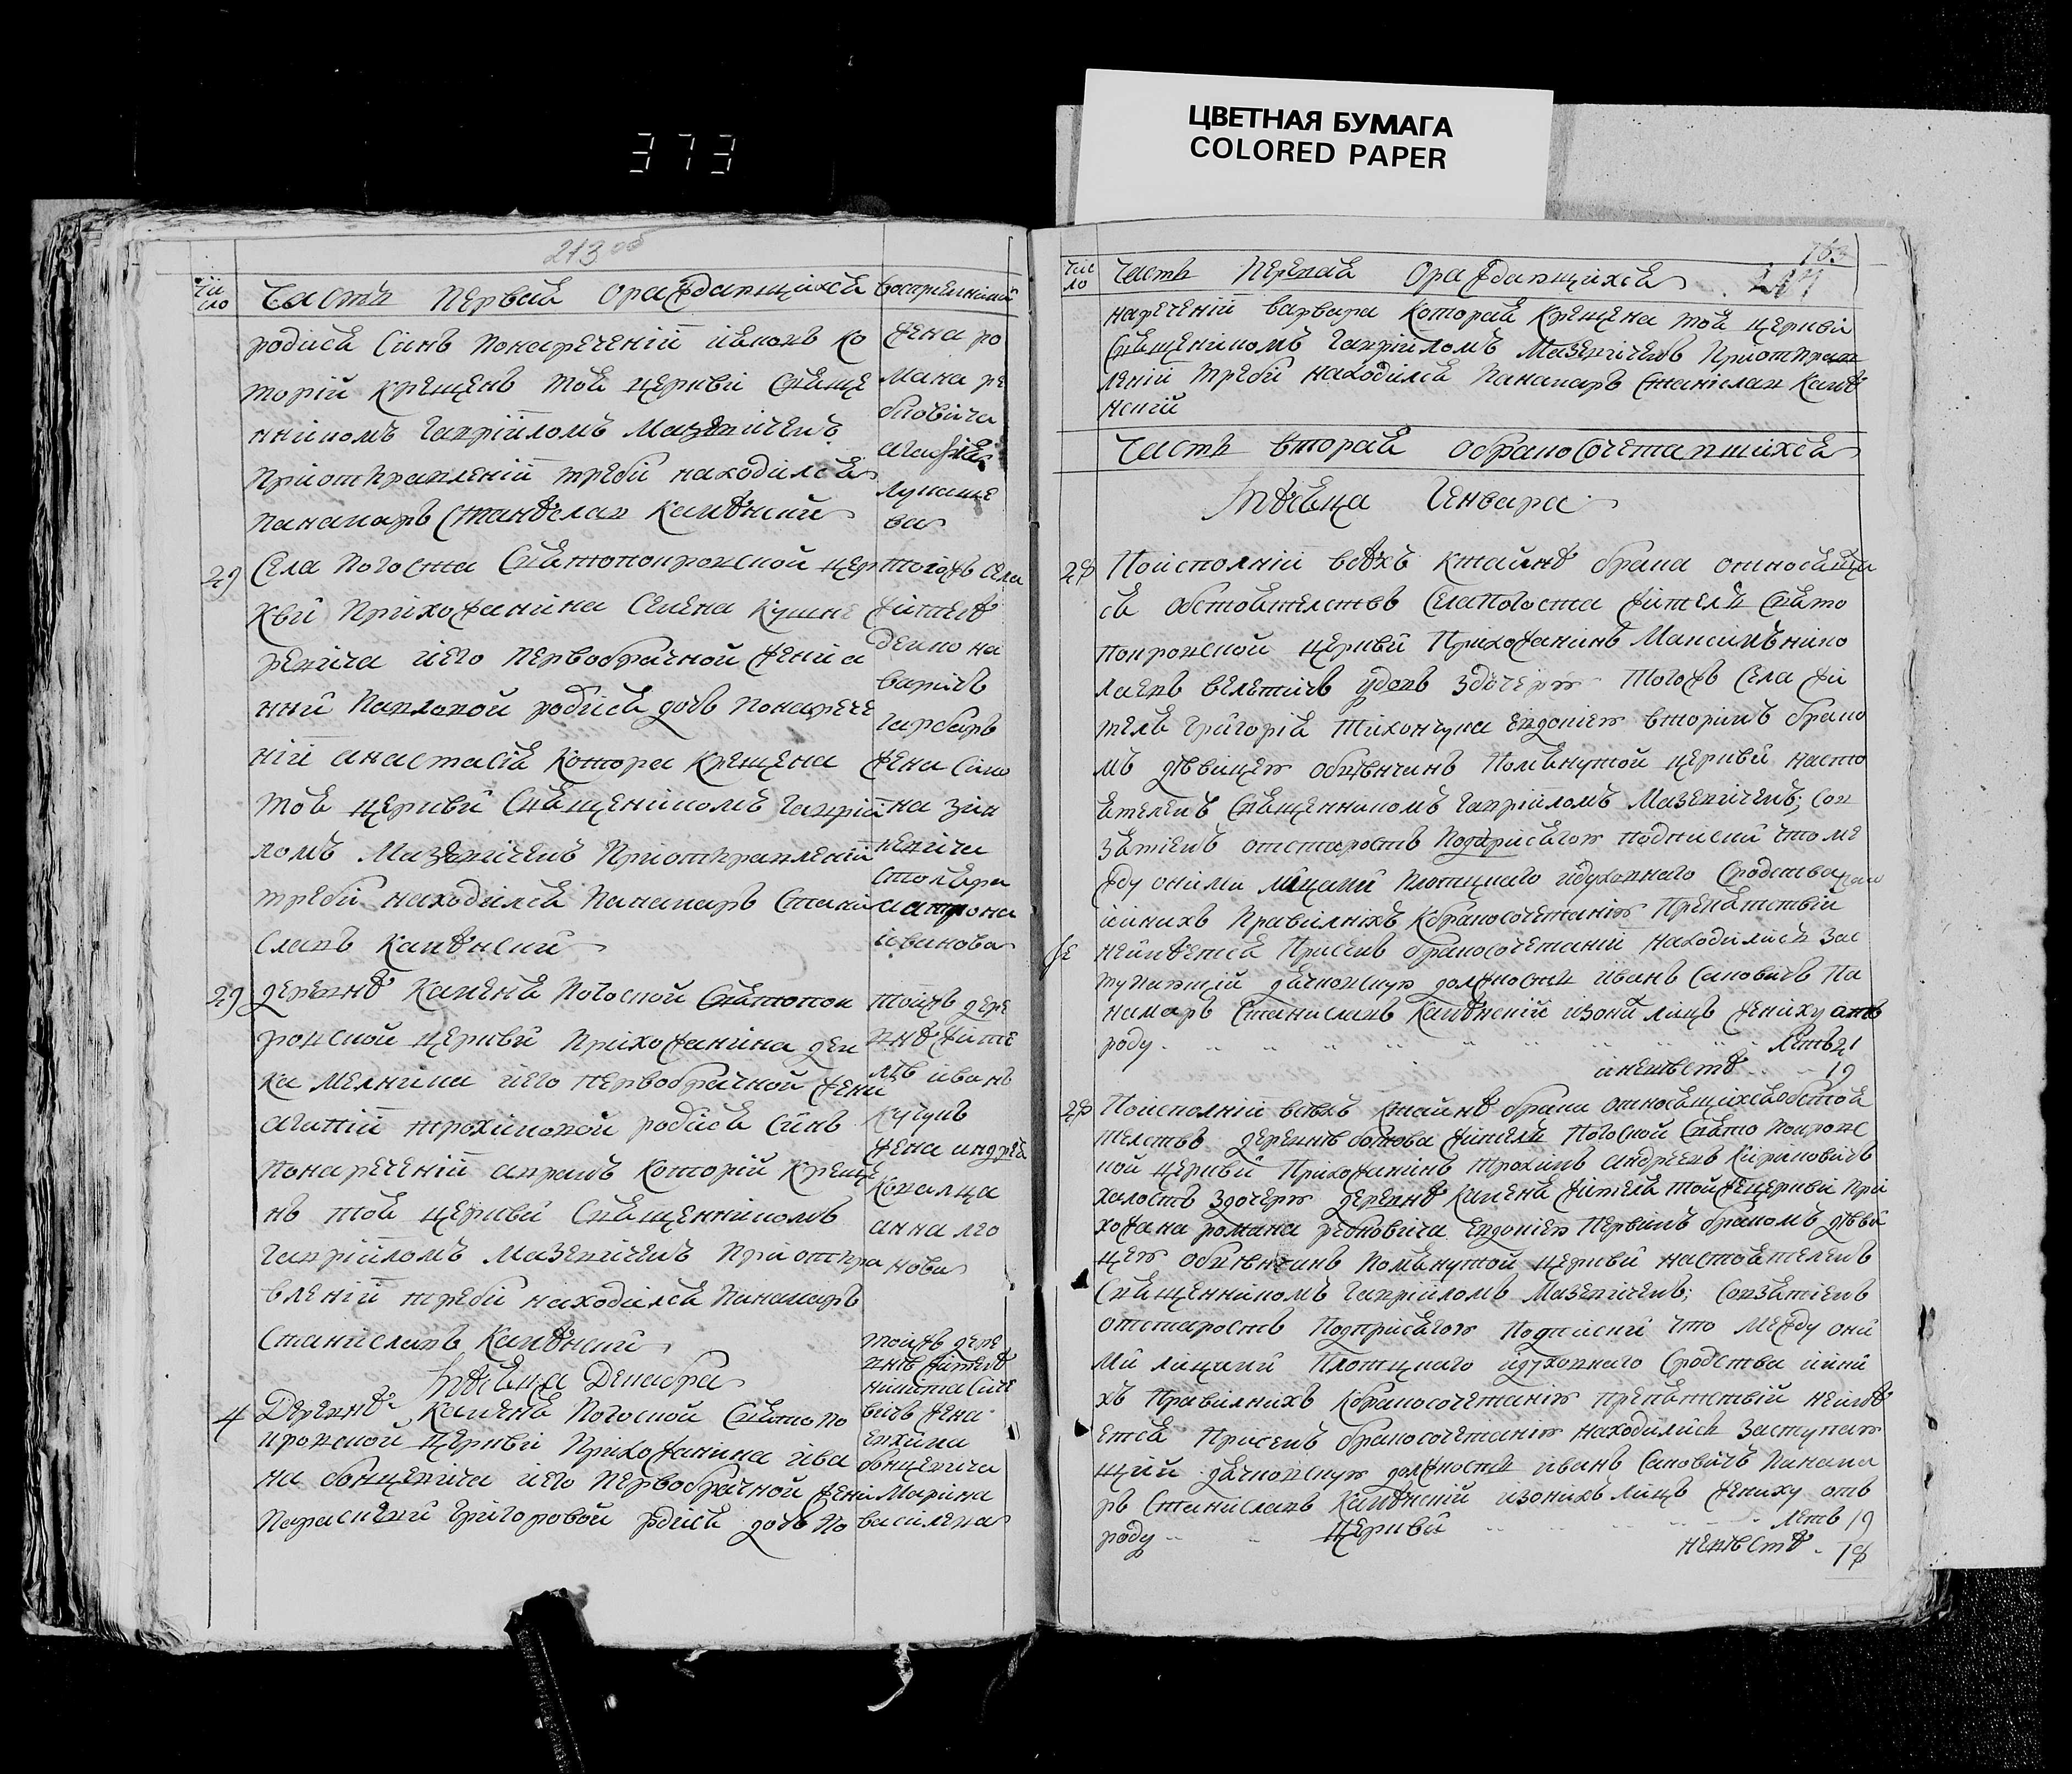 373
ЦВЕТНАЯ БУМАГА
COLORED PAPER
213 об
Чи сло
Часть Первая ораждающихся
восприемники
родися Синъ Понаречении ияковъ ко
торiй крещенъ тоя церкви Свяще
нникомъ Гаврiиломъ Мазевичемъ
Приотправлениi требы находился
панамаръ Станѣславъ Камѣнский
жена ро
мана ре
бковича
агафiя
лукаше
ва
29 Села Погоста Святопокровской цер
кви Прихожанина Семена Кушне
ревича иего первобрачной жени а
нни Павловой родися дочь Понарече
нiй анастасiя котора крещена
тоя церкви Священiкомъ Гаврiи
ломъ Мазевичемъ Приотправленiй
требы находился Панамаръ Стани
славъ Камѣнский
тогожъ села
жителѣ
демко на
варичъ
гарбаръ
жена сам
на зин
кевича
столяра
матрона
iванова
29 деревнѣ Каменя Погоской Святопок
ровской церкви Прихожанина дем
ка мелника иего первобрачной жени
агапiй трохимовой родися Синъ
понареченiй аврамъ которiй креще
нъ тоя церкви Священникомъ
Гаврiиломъ Мазевичемъ Приотпра
вленiй требы находился Панамаръ
Станиславъ Камѣнский
тойжъ дере
внѣ жите
лѣ иванъ
жена андрея
ковалца
анна лео
нова
Мѣсяца Декабра
4 Деревнѣ Каменя Погоской Святопо
кровской церкви Прихожанина ива
на бонцевича иего первобрачной жени
Параскеви Григоровой родися дочь по
тойжъ дере
внѣ жителѣ
никита
вичъ жена
евхима
бонцевича
Марина
василева
Чис ло
Часть Первая Ораждающихся
нареченiй варвара которая крещена тоя церкви
Священикомъ Гаврiиломъ Мазевичемъ Приотправ
ленiй требы находился Панамаръ Станiславъ Камѣ
нский
Часть вторая обракосочетавшихся
Мѣсяца Генвара
28 Поисполнiй всѣхъ ктаинѣ брака относящи
ся обстоятелствъ села Погоста жителъ Свято
покровской церкви Прихожанинъ Максимъ нико
лаевъ велетичъ удовъ здочерю тогожъ села жи
теля Григорiя Тихончука Евдокиею вторимъ брако
мъ дѣвицею обвѣнчанъ Помянутой церкви насто
ятелемъ Священникомъ Гаврiиломъ Мазевичемъ; сов
зятiемъ отстаростъ подприсягою подписки что ме
жду оними лицами плотцкаго идуховнаго сродства
иинихъ правилнихъ кбракосочетанiю препятствiй
неимѣется Присемъ бракосочетанiй находилися зас
тупивший дячковскую должность иванъ Сановичъ Па
намаръ Станиславъ Камѣнский изони лицъ жениху отъ
роду летъ 21
аневѣстѣ 19
28 Поисполнiй всѣхъ ктаинѣ брака относящихся обстоя
телствъ деревнѣ ботова жителъ Погоской Свято Покровс
кой церкви Прихожанинъ Трохимъ андреевъ Кирановичъ
холостъ здочерю деревнѣ Каменя жителя тойжецеркви При
хожана романа ребковича Евдокиею первимъ бракомъ дѣви
цею обвѣнчанъ Помянутой церкви настоятелемъ
Священникомъ Гаврiиломъ Мазевичемъ; совзятiемъ
отстаростъ подприсягою подписки что между они
ми лицами плотцкаго идуховнаго сродства иини
хъ правилнихъ кбракосочетанiю препятствiй неимѣ
ется Присемъ бракосочетанiю находилися заступаю
щий дячковскую должность иванъ Сановичъ Панама
ръ Станиславъ Камѣнский изонихъ лицъ жениху отъ
роду летъ 19
церкви
невѣстѣ 18